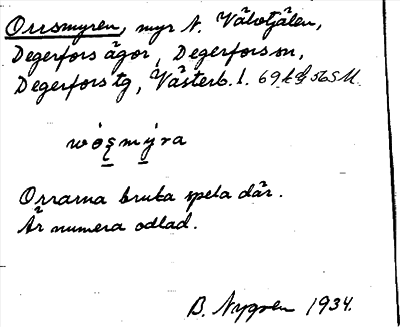 Orrsmyren, myr N. Välvtjälen,
Degerfors ägor, Degerfors sn,
Degerfors tg, Västerb. l.
Orrarna bruka spela där.
Är numera odlad.
B. Nygren 1934.